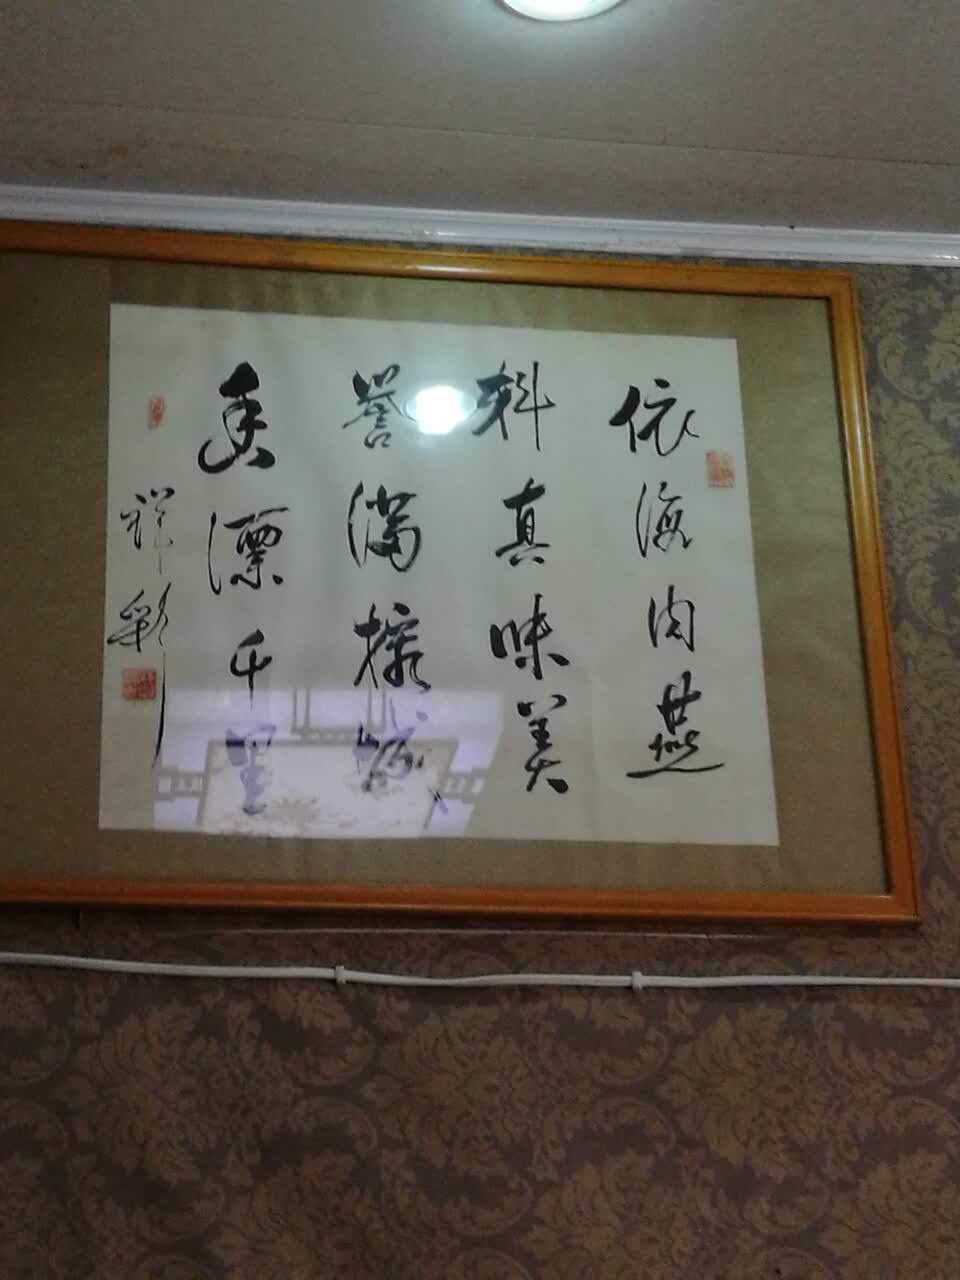 依海肉燕
料真味美
誉满榕城
香漂千里
祥彩